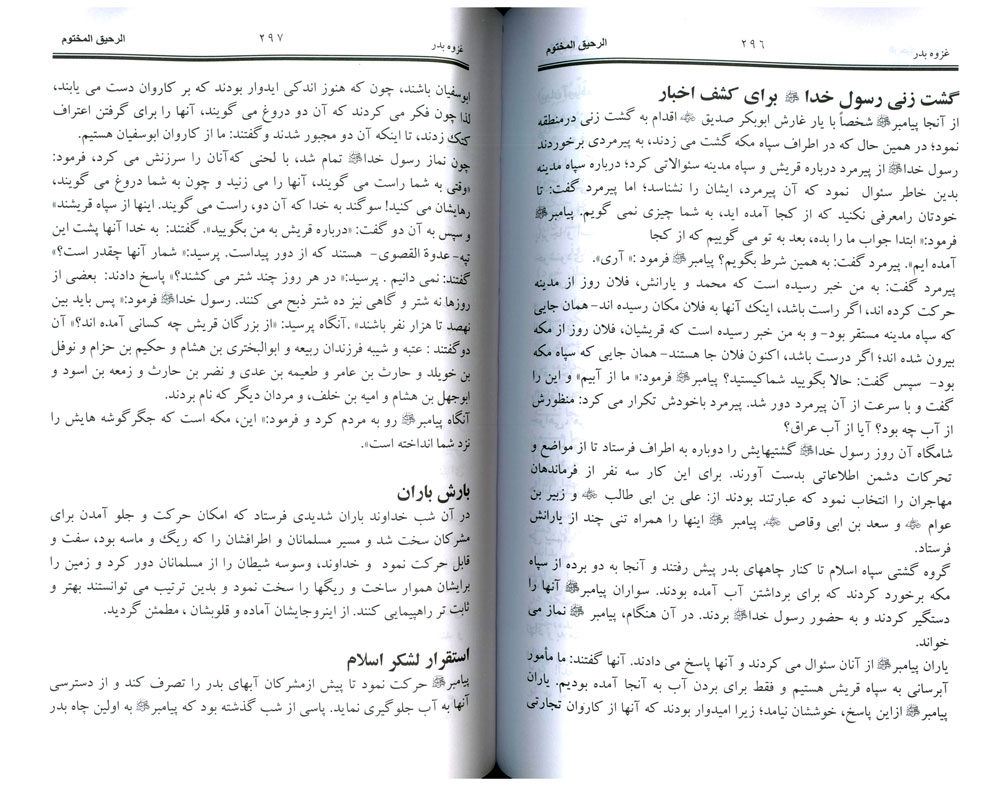 غزوه بدر ۲۹۶ الرحیق المختوم
گشت زنی رسول خدا ﷺ برای کشف اخبار
از آنجا پیامبرﷺ شخصاً با یار غارش ابوبکر صدیق اقدام به گشت زنی درمنطقه
نمود؛ در همین حال که در اطراف سپاه مکه گشت می زدند، به پیرمردی برخوردند
رسول خداﷺ از پیرمرد درباره قریش و سپاه مدینه سئوالاتی کرد؛ درباره سپاه مدینه
بدین خاطر سئوال نمود که آن پیرمرد، ایشان را نشناسد؛ اما پیرمرد گفت: تا
خودتان رامعرفی نکنید که از کجا آمده اید، به شما چیزی نمی گویم. پیامبرﷺ
فرمود:« ابتدا جواب ما را بده، بعد به تو می گوییم که از کجا
آمده ایم». پیرمرد گفت: به همین شرط بگویم؟ پیامبرﷺ فرمود :« آری».
پیرمرد گفت: به من خبر رسیده است که محمد و یارانش، فلان روز از مدینه
حرکت کرده اند، اگر راست باشد، اینک آنها به فلان مکان رسیده اند- همان جایی
که سپاه مدینه مستقر بود- و به من خبر رسیده است که قریشیان، فلان روز از مکه
بیرون شده اند؛ اگر درست باشد، اکنون فلان جا هستند- همان جایی که سپاه مکه
بود- سپس گفت: حالا بگویید شماکیستید؟ پیامبرﷺ فرمود:« ما از آبیم» و این را
گفت و با سرعت از آن پیرمرد دور شد. پیرمرد باخودش تکرار می کرد: منظورش
از آب چه بود؟ آیا از آب عراق؟
شامگاه آن روز رسول خداﷺ گشتیهایش را دوباره به اطراف فرستاد تا از مواضع و
تحرکات دشمن اطلاعاتی بدست آورند. برای این کار سه نفر از فرماندهان
مهاجران را انتخاب نمود که عبارتند بودند از: علی بن ابی طالب و زبیر بن
عوام و سعد بن ابی وقاص . پیامبر ﷺ اینها را همراه تنی چند از یارانش
فرستاد.
گروه گشتی سپاه اسلام تا کنار چاههای بدر پیش رفتند و آنجا به دو برده از سپاه
مکه برخورد کردند که برای برداشتن آب آمده بودند. سواران پیامبرﷺ آنها را
دستگیر کردند و به حضور رسول خداﷺ بردند. در آن هنگام، پیامبر ﷺ نماز می
خواند.
یاران پیامبرﷺ از آنان سئوال می کردند و آنها پاسخ می دادند. آنها گفتند: ما مأمور
آبرسانی به سپاه قریش هستیم و فقط برای بردن آب به آنجا آمده بودیم. یاران
پیامبرﷺ ازاین پاسخ، خوششان نیامد؛ زیرا امیدوار بودند که آنها از کاروان تجارتی
غزوه بدر ۲۹۷ الرحیق المختوم
ابوسفیان باشند، چون که هنوز اندکی ایدوار بودند که بر کاروان دست می یابند،
لذا چون فکر می کردند که آن دو دروغ می گویند، آنها را برای گرفتن اعتراف
کتک زدند، تا اینکه آن دو مجبور شدند وگفتند: ما از کاروان ابوسفیان هستیم.
چون نماز رسول خداﷺ تمام شد، با لحنی که‌آنان را سرزنش می کرد، فرمود:
«وقتی به شما راست می گویند، آنها را می زنید و چون به شما دروغ می گویند،
رهایشان می کنید! سوگند به خدا که آن دو، راست می گویند. اینها از سپاه قریشند»
و سپس به آن دو گفت: «درباره قریش به من بگویید». گفتند: به خدا آنها پشت این
تپه- عدوة القصوی- هستند که از دور پیداست. پرسید:« شمار آنها چقدر است؟»
گفتند: نمی دانیم . پرسید:« در هر روز چند شتر می کشند؟» پاسخ دادند: بعضی از
روزها نه شتر و گاهی نیز ده شتر ذبح می کنند. رسول خداﷺ فرمود:« پس باید بین
نهصد تا هزار نفر باشند» .آنگاه پرسید: «از بزرگان قریش چه کسانی آمده اند؟» آن
دوگفتند : عتبه و شیبه فرزندان ربیعه و ابوالبختری بن هشام و حکیم بن حزام و نوفل
بن خویلد و حارث بن عامر و طعیمه بن عدی و نضر بن حارث و زمعه بن اسود و
ابوجهل بن هشام و امیه بن خلف، و مردان دیگر که نام بردند.
آنگاه پیامبرﷺ رو به مردم کرد و فرمود:« این، مکه است که جگرگوشه هایش را
نزد شما انداخته است».
بارش باران
در آن شب خداوند باران شدیدی فرستاد که امکان حرکت و جلو آمدن برای
مشرکان سخت شد و مسیر مسلمانان و اطرافشان را که ریگ و ماسه بود، سفت و
قابل حرکت نمود و خداوند، وسوسه شیطان را از مسلمانان دور کرد و زمین را
برایشان هموار ساخت و ریگها را سخت نمود و بدین ترتیب می توانستند بهتر و
ثابت تر راهپیمایی کنند. از اینروجایشان آماده و قلوبشان ، مطمئن گردید.
استقرار لشکر اسلام
پیامبرﷺ حرکت نمود تا پیش ازمشرکان آبهای بدر را تصرف کند و از دسترسی
آنها به آب جلوگیری نماید. پاسی از شب گذشته بود که پیامبرﷺ به اولین چاه بدر